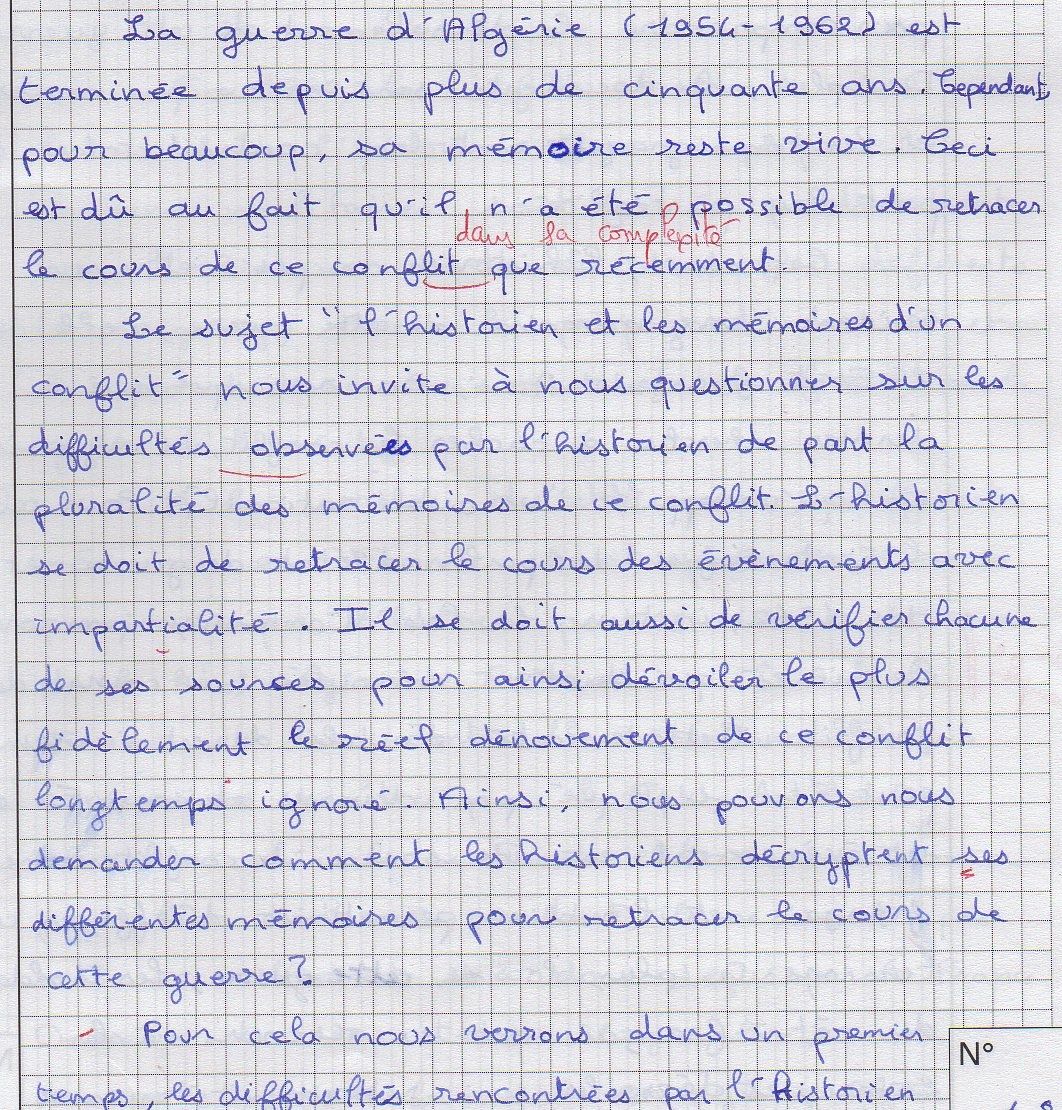 La guerre d'Algérie (1954-1962) est
terminée depuis plus de cinquante ans. Cependant,
pour beaucoup, sa mémoire reste vive. Ceci
est dû au fait qu'il n'a été possible de retracer
dans sa complexité
le cours de ce conflit que récemment.
Le sujet "l'historien et les mémoires d'un
conflit" nous invite à nous questionner sur les
difficultés observées par l'historien de part la
pluralité des mémoires de ce conflit. L'historien
se doit de retracer le cours des évènements avec
impartialité. Il se doit aussi de vérifier chacune
de ses sources pour ainsi dévoiler le plus
fidèlement le réel dénouement de ce conflit
longtemps ignoré. Ainsi, nous pouvons nous
demander comment les historiens décryptent ses
différentes mémoires pour retracer le cours de
cette guerre?
- Pour cela nous verrons dans un premier
N°
temps, les difficultés rencontrées par l'historien